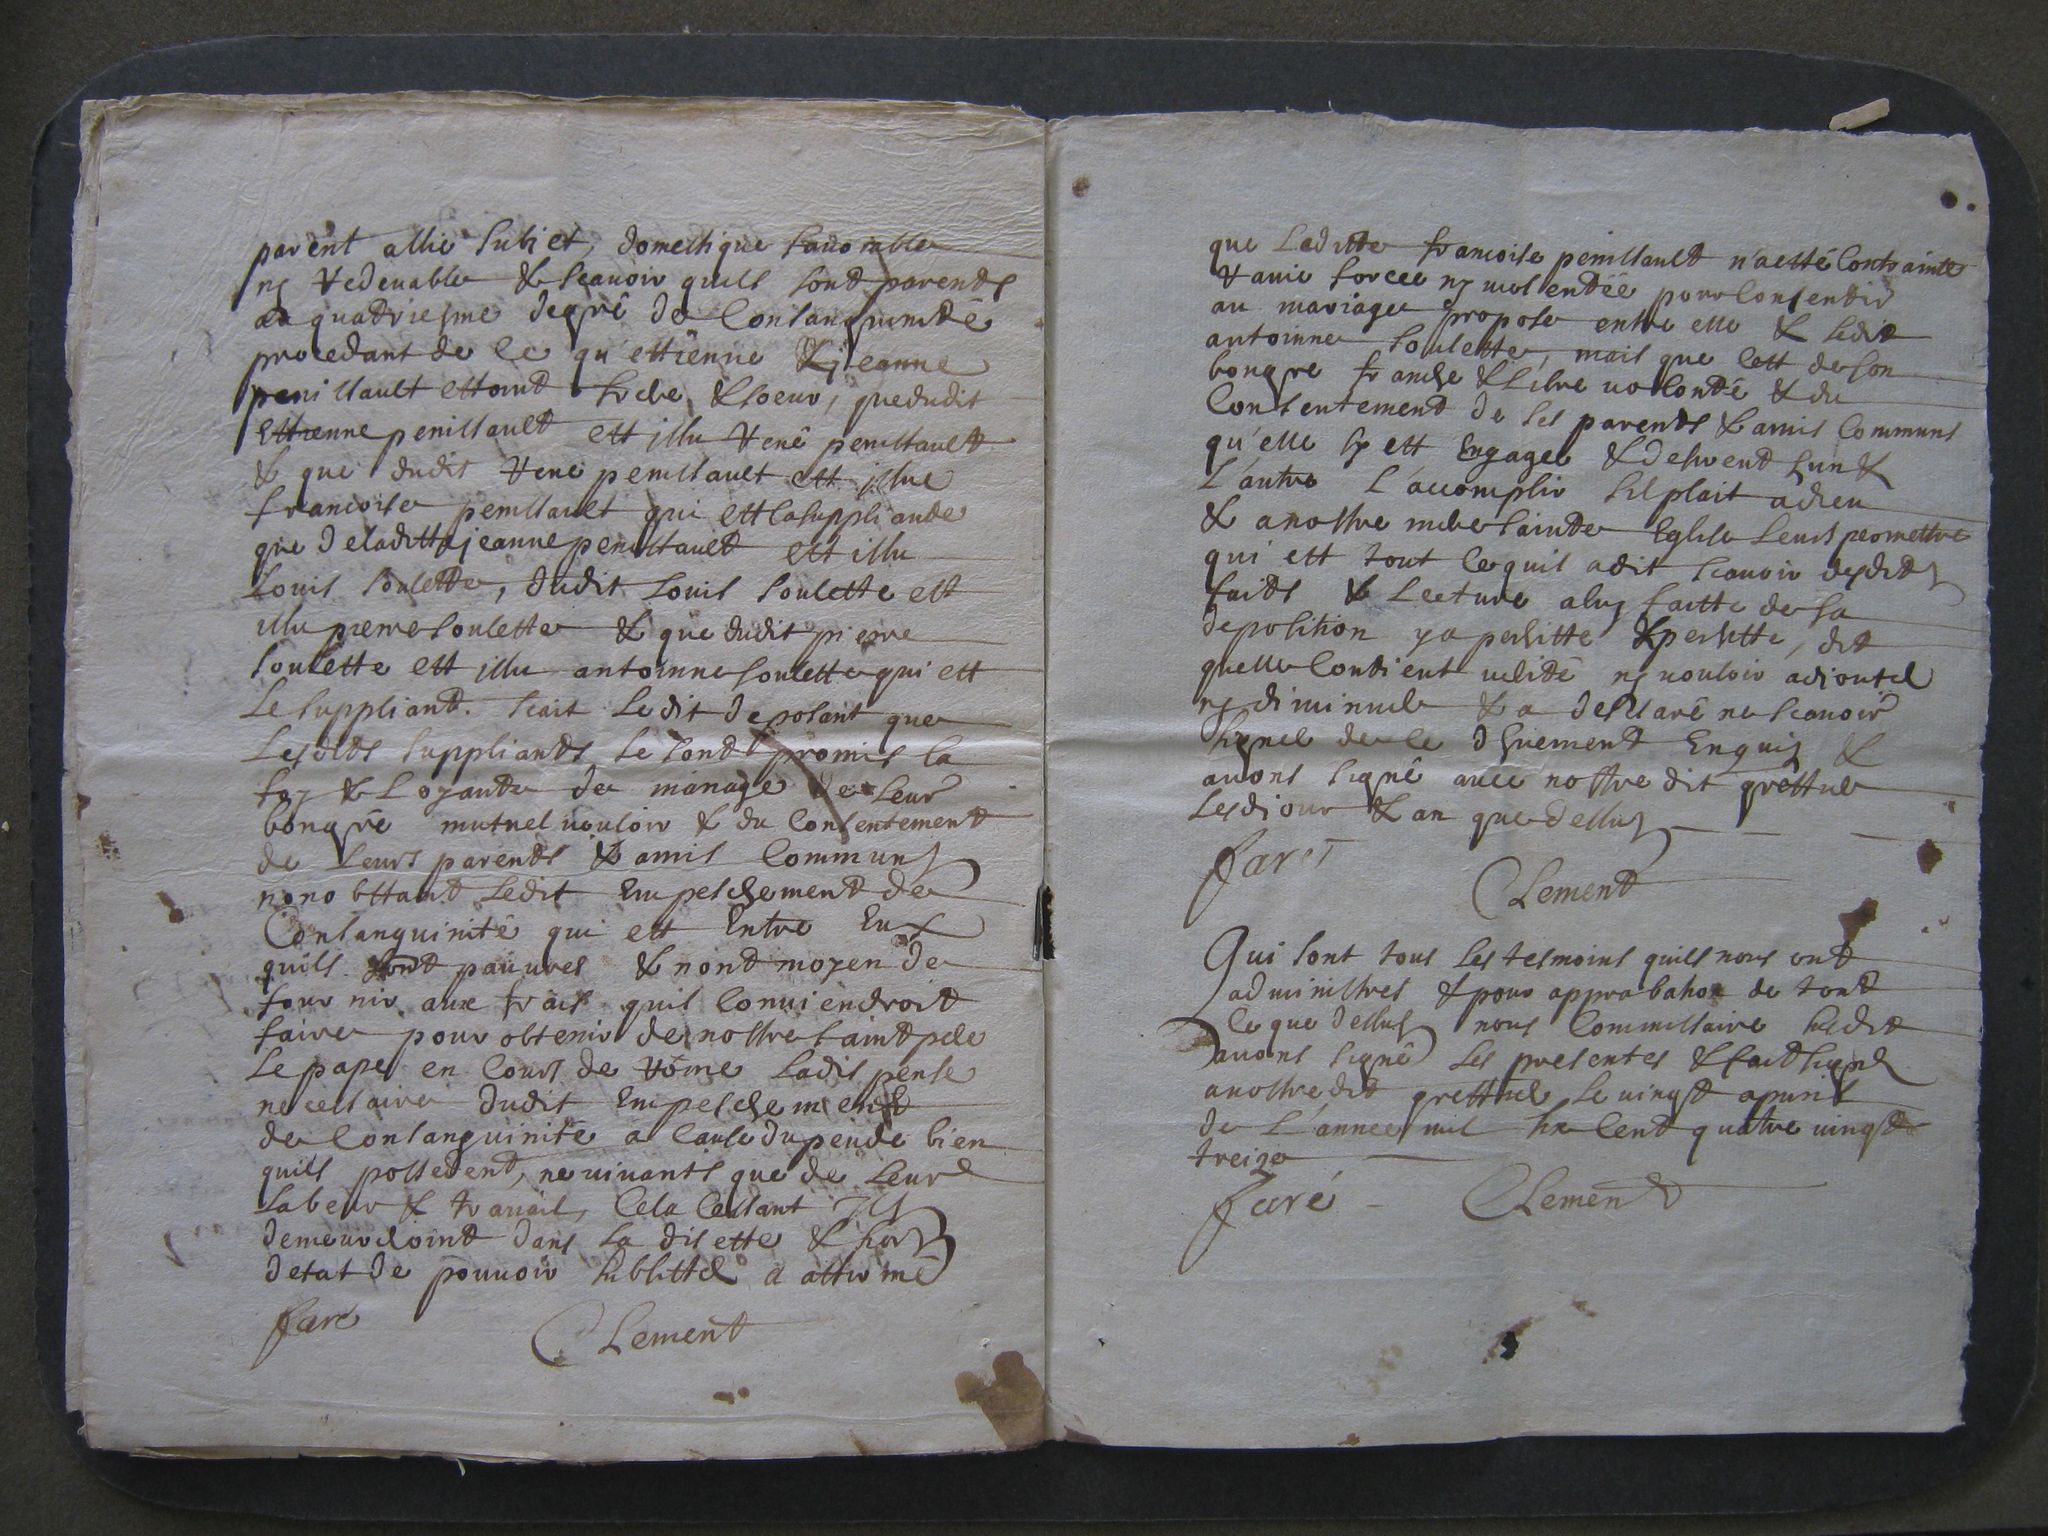 parent allié subiet, domestique fauorable
ny redeuable & scauoir quils sont parents
au quatriesme degré de Consanguinité
procedant de ce qu'estienne & jeanne
penissault estoint frere & soeur, que dudit
Estienne penissault est issu René penissault
& que dudit René penissault est issue
francoise penissault qui est la suppliante
que de laditte jeanne penissault est issu
Louis soulette, dudit Louis soulette est
issu pierre soulette & que dudit pierre
soulette est issu antoinne soulette qui est
Le suppliant. scait Ledit deposant que
Lesdits suppliants se sont promis la
foy & Loyauté de mariage de Leur
bongré mutuel uouloir & du Consentement
de Leurs parents & amis Communs
nonobstant Ledit Empeschement de
Consanguinité qui est Entre Eux
quils sont pauures & nont moyen de
fournir aux frais quil Conuiendroit
faire pour obtenir de nostre saint pere
Le pape en Cours de Rome La dispense
necessaire dudit Empeschement
de Consanguinité a Cause du peu de bien
quils possedent, ne uiuants que de Leur
Labeur & trauail, Cela Cessant Ils
demeureroint dans La disette & hors
detat de pouuoir subsister a affirmé
faré Clement
que Laditte francoise penissault n'a esté Contrainte
rauie forcee ny uiolentée pour Consentir
au mariage propose entre elle & Ledit
antoinne soulette, mais que Cest de son
bongre franche & Libre uolonté & du
Consentement de ses parents & amis Communs
qu'elle sy est Engagee & desirent Lun &
L'autre L'accomplir sil plait a dieu
& a nostre mere sainte Eglise Leurs permettre
qui est tout Ce quil a dit scauoir desdits
faits & Lecture a luy faitte de sa
deposition y a persisté & persiste, dit
quelle Contient uerité ny uouloir adiouter
ny diminuer & a desclaré ne scauoir
signer de ce dhuement Enquis &
auons signé auec nostre dit greffier
Lesdi jour & an que dessus
faré Clement
Qui sont tous Les tesmoins quils nous ont
administres & pour approbation de tout
Ce que dessus nous Commissaire susdit
auons signé Les presentes & fait signer
a nostredit greffier Le uingt apuril
de L'annee mil six Cent quatre uingt
treize
faré Clement